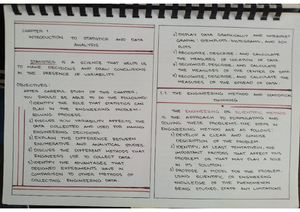 CHAPTER 1
INTRODUCTION TO STATISTICS AND DATA
ANALYSIS
STATISTICS IS A SCIENCE THAT HELPS US
TO MAKE DECISIONS AND DRAW CONCLUSIONS
IN THE PRESENCE OF VARIABILITY.
OBJECTIVES:
AFTER CAREFUL STUDY OF THIS CHAPTER,
YOU SHOULD BE ABLE TO DO THE FOLLOWING:
1) IDENTIFY THE ROLE THAT STATISTICS CAN
PLAY IN THE ENGINEERING PROBLEM
SOLVING PROCESS
2) DISCUSS HOW VARIABILITY AFFECTS THE
DATA COLLECTED AND USED FOR MAKING
ENGINEERING DECISIONS
3) EXPLAIN THE DIFFERENCE BETWEEN
ENUMERATIVE AND ANALYTICAL STUDIES
4) DISCUSS THE DIFFERENT METHODS THAT
ENGINEERS USE TO COLLECT DATA
5) IDENTIFY THE ADVANTAGES THAT
DESIGNED EXPERIMENTS HAVE IN
COMPARISON TO OTHER METHODS OF
COLLECTING ENGINEERING DATA
DISPLAY DATA GRAPHICALLY AND INTERPRET
HISTOGRAMS, AND BOX
PLOTS
RECOGNIZE, DESCRIBE, AND CALCULATE
THE MEASURES OF LOCATION OF DATA
RECOGNIZE, DESCRIBE, AND CALCULATE
THE MEASURES OF THE CENTER OF DATA
RECOGNIZE, DESCRIBE, AND CALCULATE
THE MEASURES OF THE
1.1 THE ENGINEERING METHOD AND STATISTICAL
THINKING
THE ENGINEERING OR SCIENTIFIC METHOD
IS THE APPROACH TO FORMULATING AND
SOLVING THESE PROBLEMS. THE STEPS IN
ENGINEERING METHOD ARE AS FOLLOWS:
1) DEVELOP A CLEAR AND CONCISE
DESCRIPTION OF THE PROBLEM
2) IDENTIFY, AT LEAST TENTATIVELY, THE
IMPORTANT FACTORS THAT AFFECT THIS
PROBLEM OR THAT MAY PLAY A ROLE
IN ITS SOLUTION
3) PROPOSE A MODEL FOR THE PROBLEM,
USING SCIENTIFIC OR ENGINEERING
KNOWLEDGE OF THE PHENOMENON
BEING STUDIED. STATE ANY LIMITATIONS